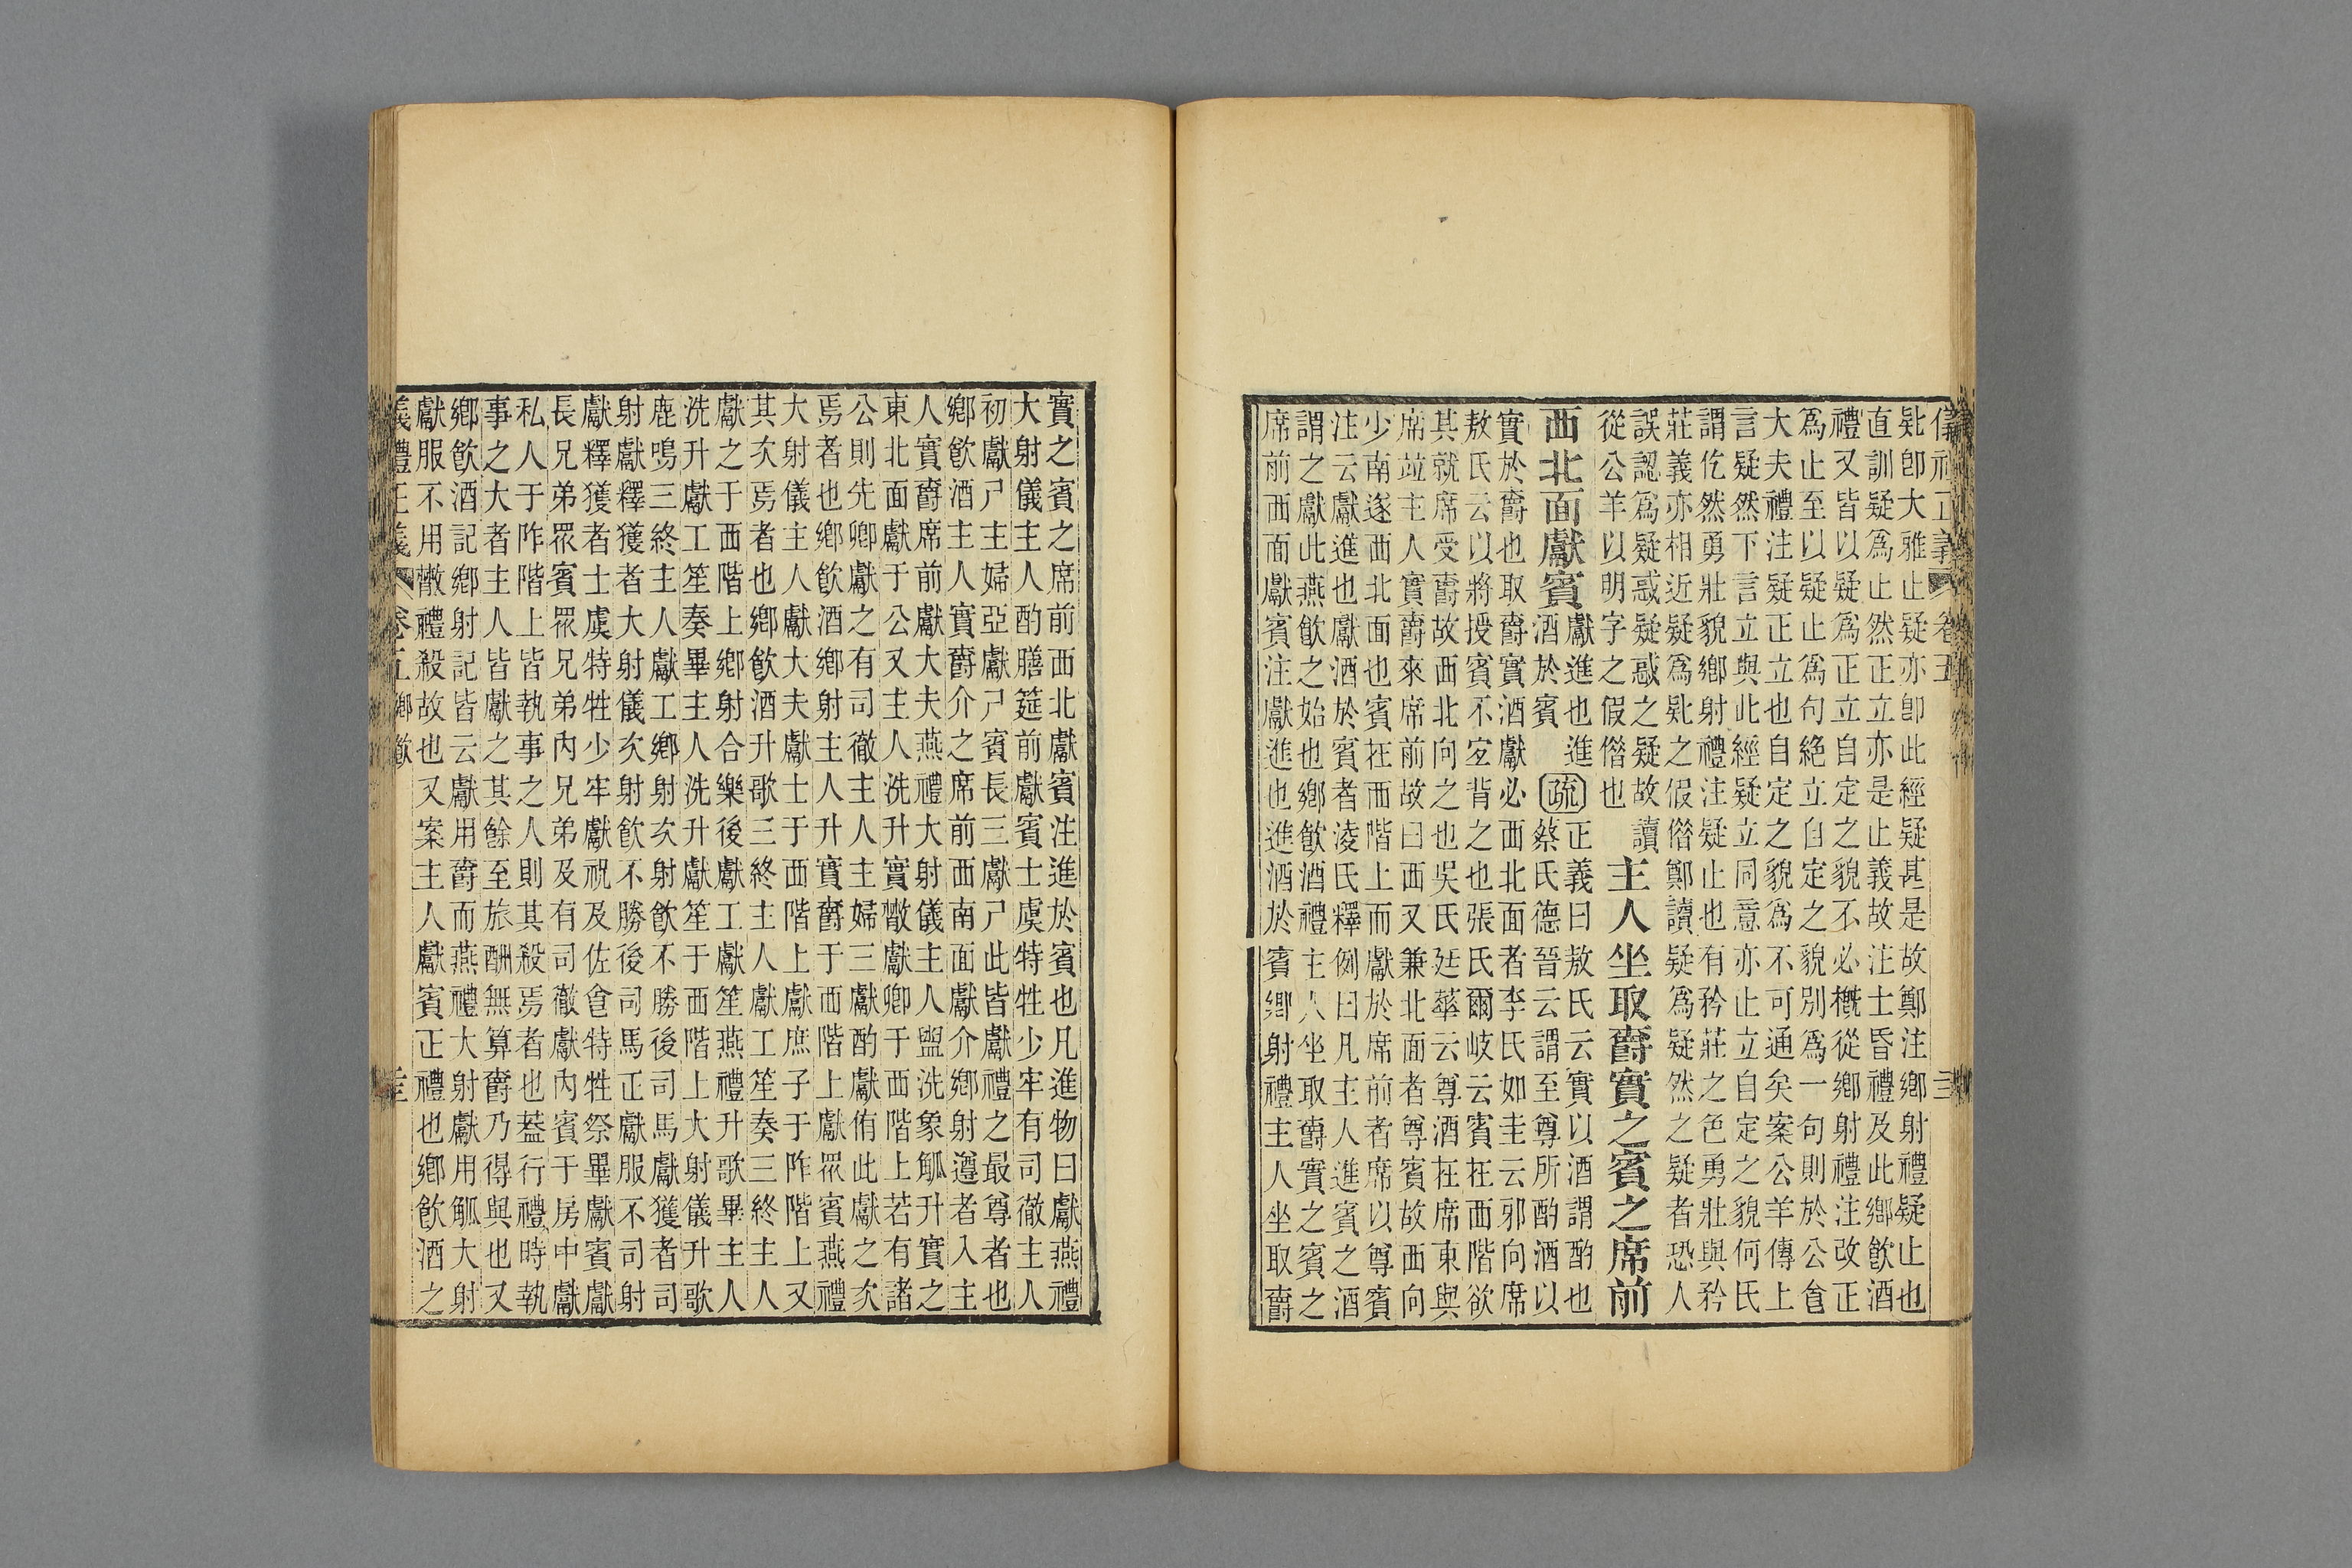 儀禮正義 卷五 三
𠤕卽大雅止疑亦卽此經疑甚是故鄭注鄉射禮疑止也
直訓疑爲止然正立亦是止義故注士昏禮及此鄉飮酒
禮又皆以疑爲正立自定之貌不必槪從鄉射禮注改正
爲止至以疑止爲句絕立自定之貌別爲一句則於公食
大夫禮注疑正立也自定之貌爲不可通矣案公羊傳上
言疑然下言立與此經疑立同意亦止立自定之貌何氏
謂仡然勇壯貌鄉射禮注疑止也有矜莊之色勇壯與矜
莊義亦相近疑爲𠤕之假借鄭讀疑爲疑然之疑者恐人
誤認爲疑惑疑惑之疑故讀
從公羊以明字之假借也
主人坐取爵實之賓之席前
西北面獻賓
獻進也進
酒於賓
疏
正義曰敖氏云實以酒謂酌也
蔡氏德晉云謂至尊所酌酒以
實於爵也取爵實酒獻必西北面者李氏如圭云邪向席
敖氏云以將授賓不宜背之也張氏爾岐云賓在西階欲
其就席受爵故西北向之也吳氏廷華云尊酒在席東與
席竝主人實爵來席前故曰西又兼北面者尊賓故西向
少南遂西北面也賓在西階上而獻於席前者席以尊賓
注云獻進也獻酒於賓者淩氏釋例曰凡主人進賓之酒
謂之獻此燕飮之始也鄉飮酒禮主人坐取爵實之賓之
席前西面獻賓注獻進也進酒於賓鄉射禮主人坐取爵
實之賓之席前西北獻賓注進於賓也凡進物曰獻燕禮
大射儀主人酌膳筵前獻賓士虞特牲少牢有司徹主人
初獻尸主婦亞獻尸賓長三獻尸此皆獻禮之最尊者也
鄉飮酒主人實爵介之席前西南面獻介鄉射遵者入主
人實爵席前獻大夫燕禮大射儀主人盥洗象觚升實之
東北面獻于公又主人洗升實散獻卿于西階上若有諸
公則先卿獻之有司徹主人主婦三獻酌獻侑此獻之次
焉者也鄉飮酒鄉射主人升實爵于西階上獻眾賓燕禮
大射儀主人獻大夫獻士于西階上獻庶子于阼階上又
其次焉者也鄉飮酒升歌三終主人獻工笙奏三終主人
獻之于西階上鄉射合樂後獻工獻笙燕禮升歌畢主人
洗升獻工笙奏畢主人洗升獻笙于西階上大射儀升歌
鹿鳴三終主人獻工鄉射次射飮不勝後司馬獻獲者司
射獻釋獲者大射儀次射飮不勝後司馬正獻服不司射
獻釋獲者士虞特牲少牢獻祝及佐食特牲祭畢獻賓獻
長兄弟眾賓眾兄弟內兄弟及有司徹獻內賓于房中獻
私人于阼階上皆執事之人則其殺焉者也葢行禮時執
事之大者主人皆獻之其餘至旅酬無算爵乃得與也又
鄉飮酒記鄉射記皆云獻用爵而燕禮大射獻用觚大射
獻服不用散禮殺故也又案主人獻賓正禮也鄉飮酒之
儀禮正義 卷五 鄉